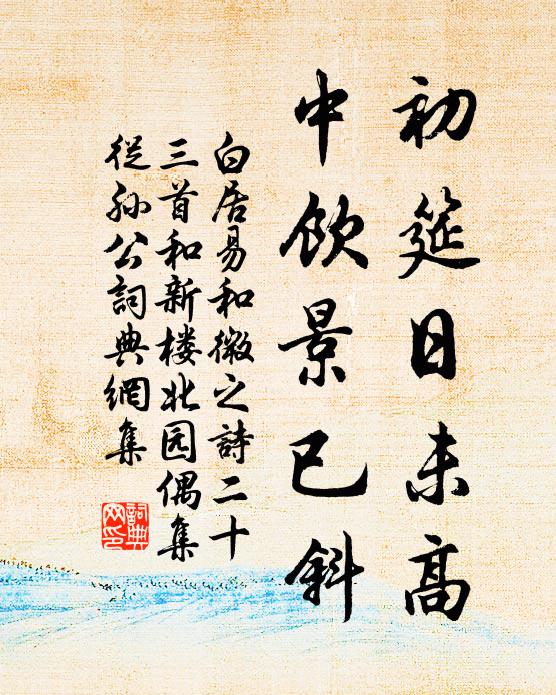 初筵日未高
中饮景已斜
白居易和微之詩二十
三首和新楼北园偶集
從孙公詞典網集
詞典
网印